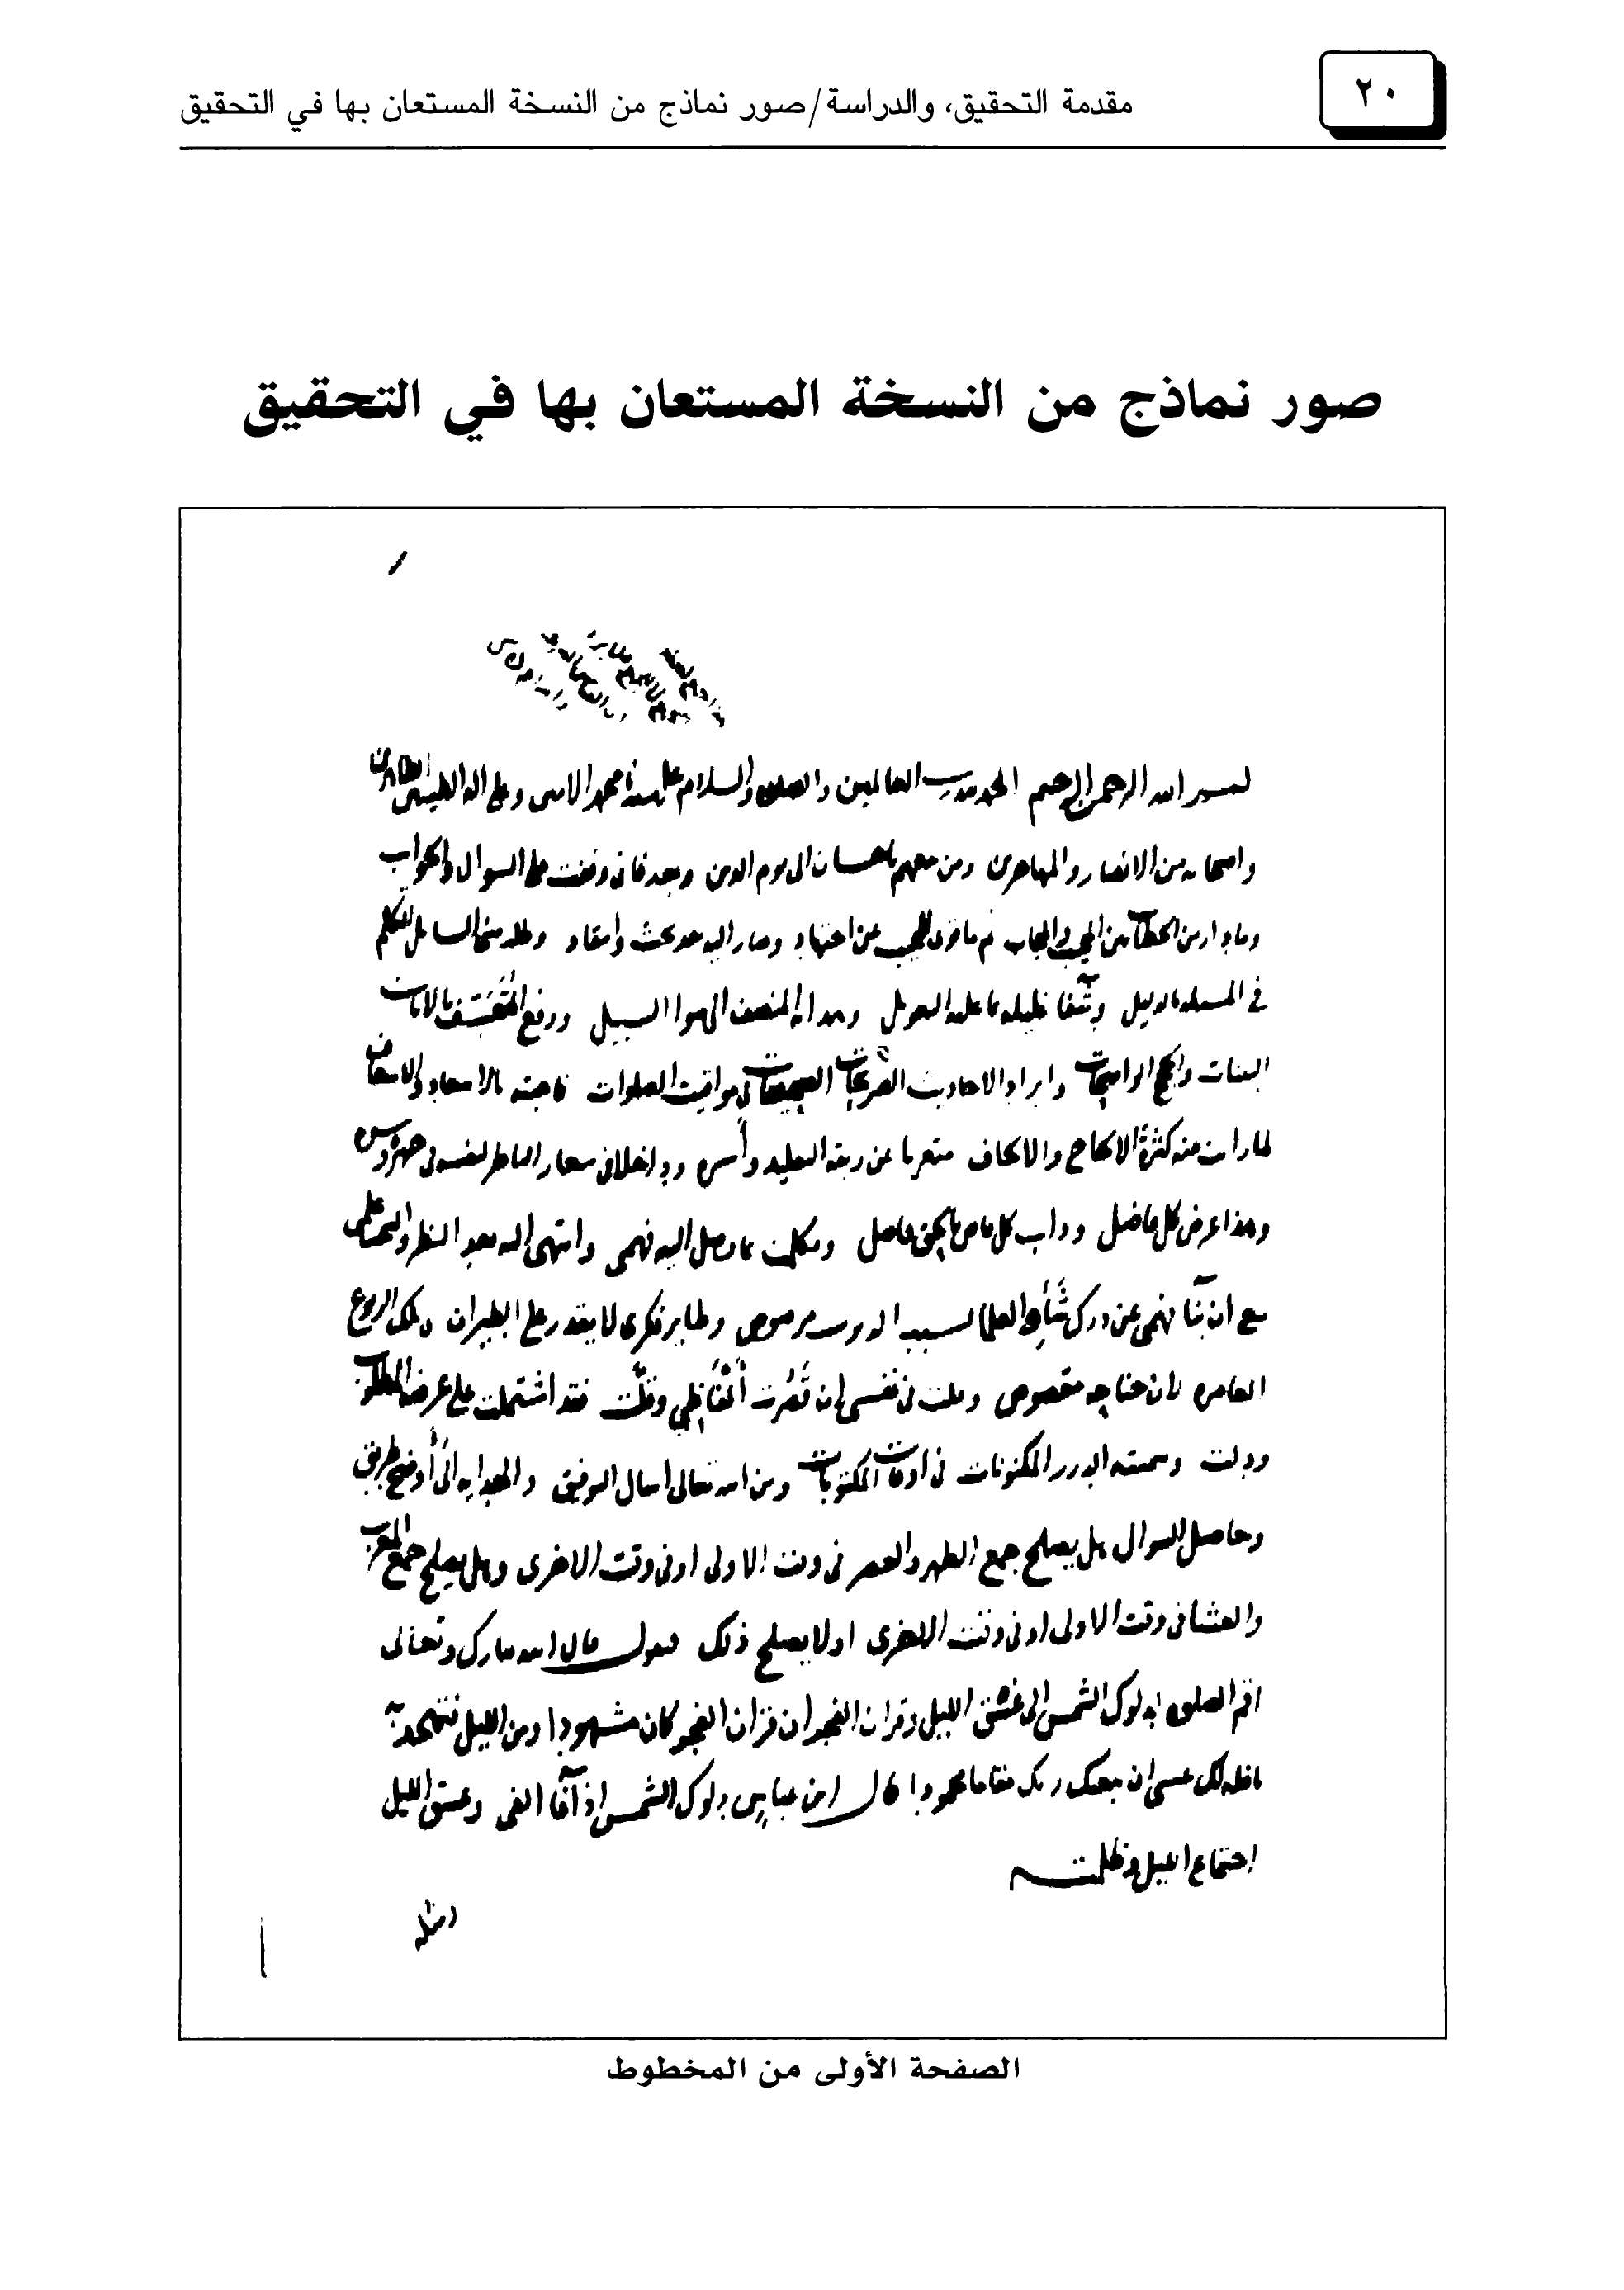 مقدمة التحقيق، والدراسة/صور نماذج من النسخة المستعان بها في التحقيق
٢٠
صور نماذج من النسخة المستعان بها في التحقيق
بسم الله الرحمن الرحيم الحمد لله رب العالمين والصلاة والسلام على سيدنا محمد الامين وعلى اله الطيبين الطاهرين
واصحابه من الانصار والمهاجرين ومن معهم باحسان الى يوم الدين وبعد فاني وقفت على السوال والجواب
وما دار من الخطاب بين المجيب والمجاب ثم ما قوى للمجيب عن اجتهاد وصار اليه بعد بحث وانتقاد وطلب مني السايل التكلم
في المسئله بالدليل وشفا غليله بما عليه التعويل وهدايه المنصف الى سوا السبيل ودفع المتعسف بالايات
البينات والحجج الواضحات وايراد الاحاديث الصريحات الصحيحات في مواقيت الصلوات فاجبته بالاسعاد والاسعاف
لما رايت منه كثرة الالحاح والالحاف متعريا عن ربقه التقليد وأسره
وهذا عرض كل فاضل وداب كل وتكلمت بما وصل اليه فهمي وانتهى اليه بعد النظر والبحث علمي
مع ان فهمي عن درك شأو العلما مرصوص وطاير فكرى لا يقدر على الطيران
العامره لان جناحه مقصوص وقلت في نفسي ان قصرت ألفاظي وقلت فقد اشتملت على عرض المطلوب
ودلت وسميته الدرر المكنونات في اوقات المكتوبات ومن الله تعالى اسال التوفيق والهدايه الى أوضح طريق
وحاصل السوال هل يصلح جمع الظهر والعصر في وقت الاولى او في وقت الاخرى وهل يصلح جمع المغرب
والعشا في وقت الاولى او في وقت الاخرى او لا يصلح ذلك فنقول قال الله تبارك وتعالى
اقم الصلوه لدلوك الشمس الى غسق الليل وقران الفجر ان قران الفجر كان مشهودا ومن الليل فتهجد به
نافله لك عسى ان يبعثك ربك مقاما محمودا قال ابن عباس دلوك الشمس اذا فا الفي وغسق الليل
اجتماع الليل وظلمته
ومثله
الصفحة الأولى من المخطوط